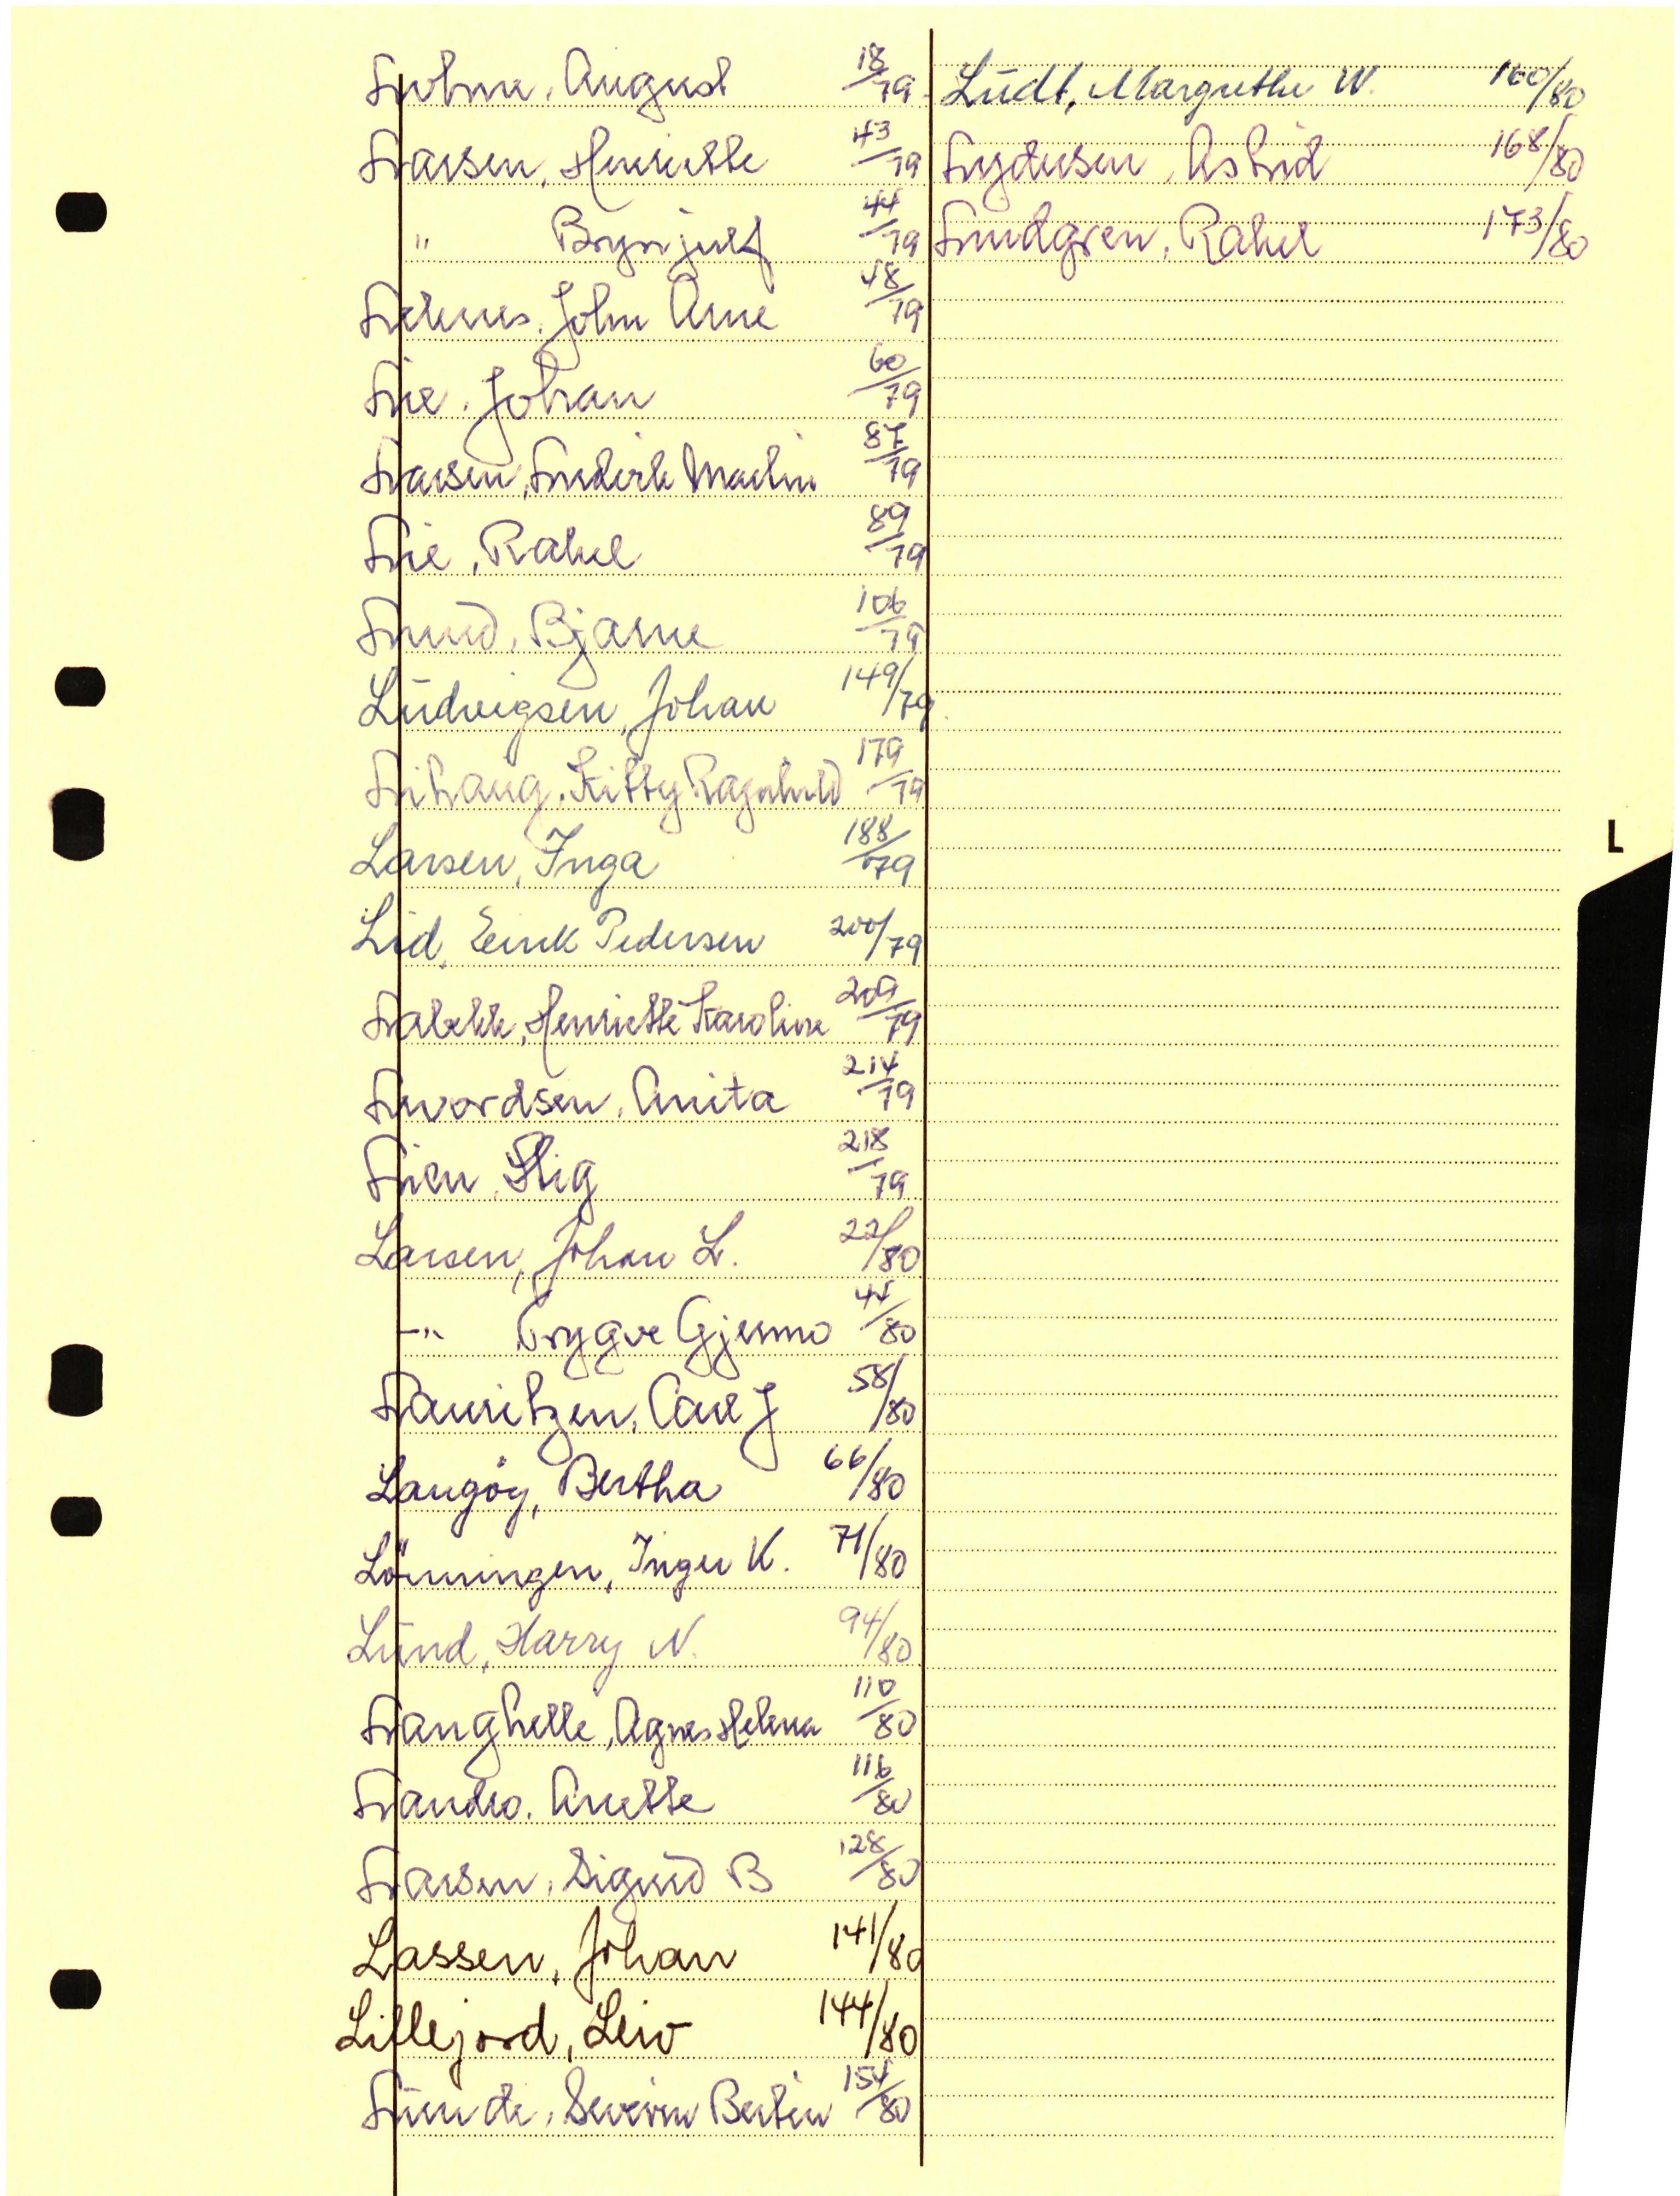 Lohne, August 18/79
Larsen, Henriette 43/79
" Brynjulf 44/79
John Arne 48/79
Lie, Johan 60/79
Larsen, Martin 87/79
Lie, Rakel 89/79
Lund, Bjarne 106/79
Ludvigsen, Johan 149/79
Lihaug, Kitty Ragnhild 179/79
Larsen, Inga 188/79
Lid, Eirik Pedersen 200/79
Henriette Karoline 209/79
Sivardsen, Anita 214/79
Lien, Stig 218/79
Larsen, Johan L. 22/80
-"- Trygve Gjermo 44/80
Lauritzen, Carl J 58/80
Langöy, Bertha 66/80
Lönningen, Inger K. 71/80
Lund, Harry N. 94/80
Langhelle, Agnes Helena 110/80
Landro, Anette 116/80
Larsen, Sigurd B 128/80
Lassen, Johan 141/80
Lillejord, Leiv 144/80
Lunde, Severin Bertin 154/80
Lüdt, Margrethe W. 160/80
Lydersen, Astrid 168/80
Lundgren, Rakel 173/80
L